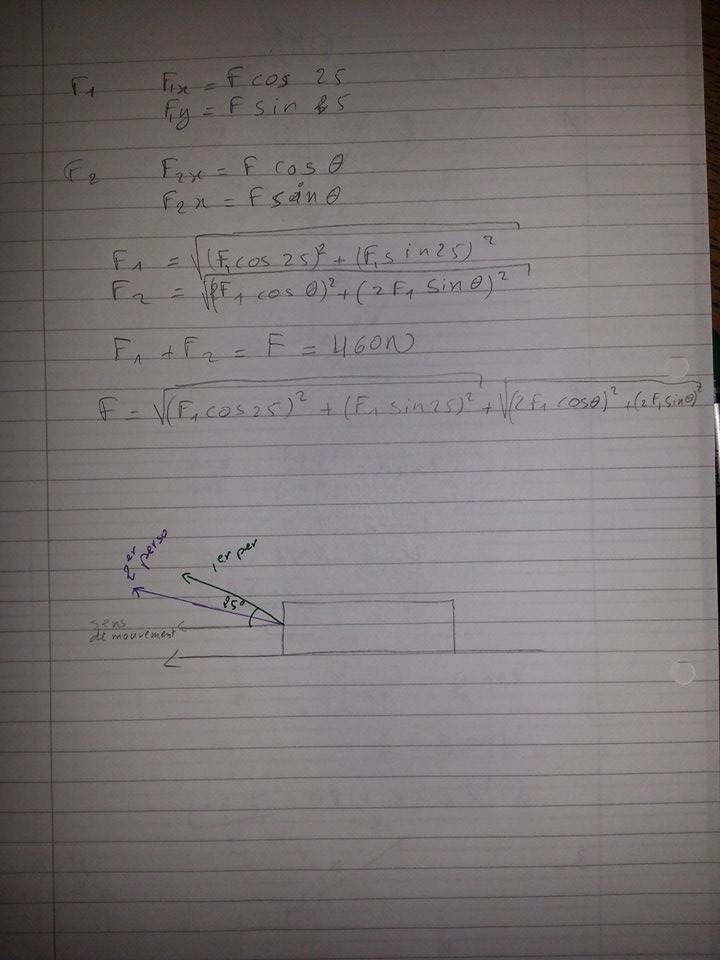 F₁ F₁x = F cos 25
F₁y = F sin 25
F₂ F₂x = F cos θ
F₂x = F sin θ
F₁ = √(F₁cos 25)² + (F₁sin25)²
F₂ = √(2F₁ cos θ)² + (2F₁ sin θ)²
F₁ + F₂ = F = 460N
F = √(F₁cos25)² + (F₁sin25)² + √(2F₁ cosθ)² + (2F₁sinθ)²
2er perso
1er per
25°
sens
de mouvement